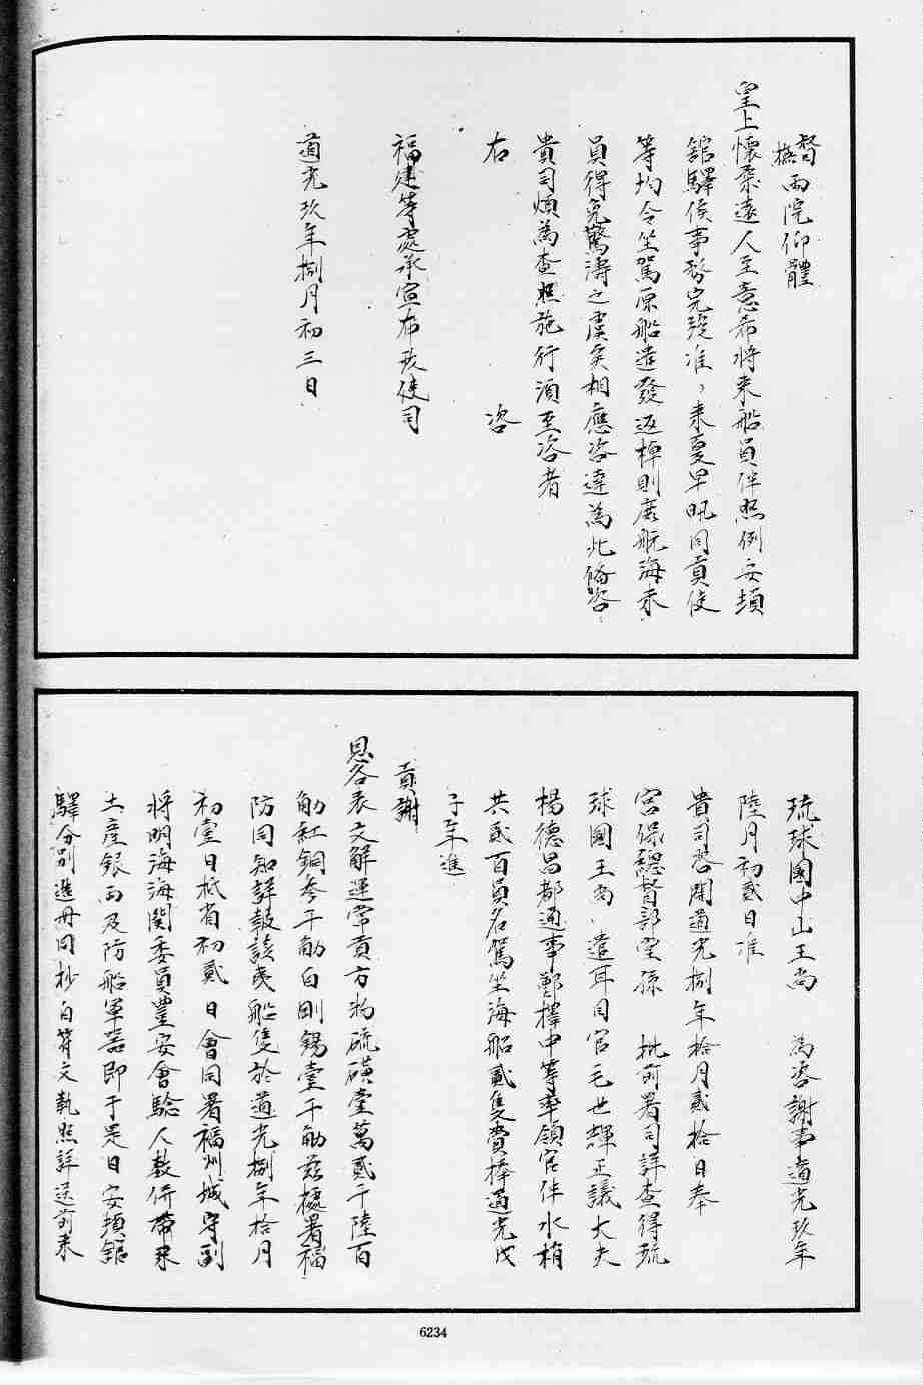 督
撫兩院仰體
皇上懷柔遠人至意希將來船員伴照例安頓
舘驛俟事務完竣准〻來夏早汛同貢使
等均令坐駕原船遣發返棹則庶航海末
員得免驚濤之虞矣相應咨達為此備咨
貴司煩為查照施行須至咨者
右　咨
福建等處承宣布政使司
道光玖年捌月初三日
琉球國中山王尚　為咨謝事道光玖年
陸月初貳日准
貴司咨開道光捌年拾月貳拾日奉
宮保總督部堂孫　批前署司詳查得琉
球國王尚〻遣耳目官毛世輝正議大夫
楊德昌都通事鄭擇中等率領官伴水梢
共貳百員名駕坐海船貳隻賫捧道光戊
子年進
貢謝
恩各表文解運常貢方物硫磺壹萬貳千陸百
觔紅銅叁千觔白剛錫壹千觔茲據署福
防同知詳報該夷船隻於道光捌年拾月
初壹日抵省初貳日會同署福州城守副
將明海海關委員豊安會驗人數併帶來
土產銀兩及防船軍器即于是日安頓舘
驛分别造册同抄白符文執照詳送前來
6234